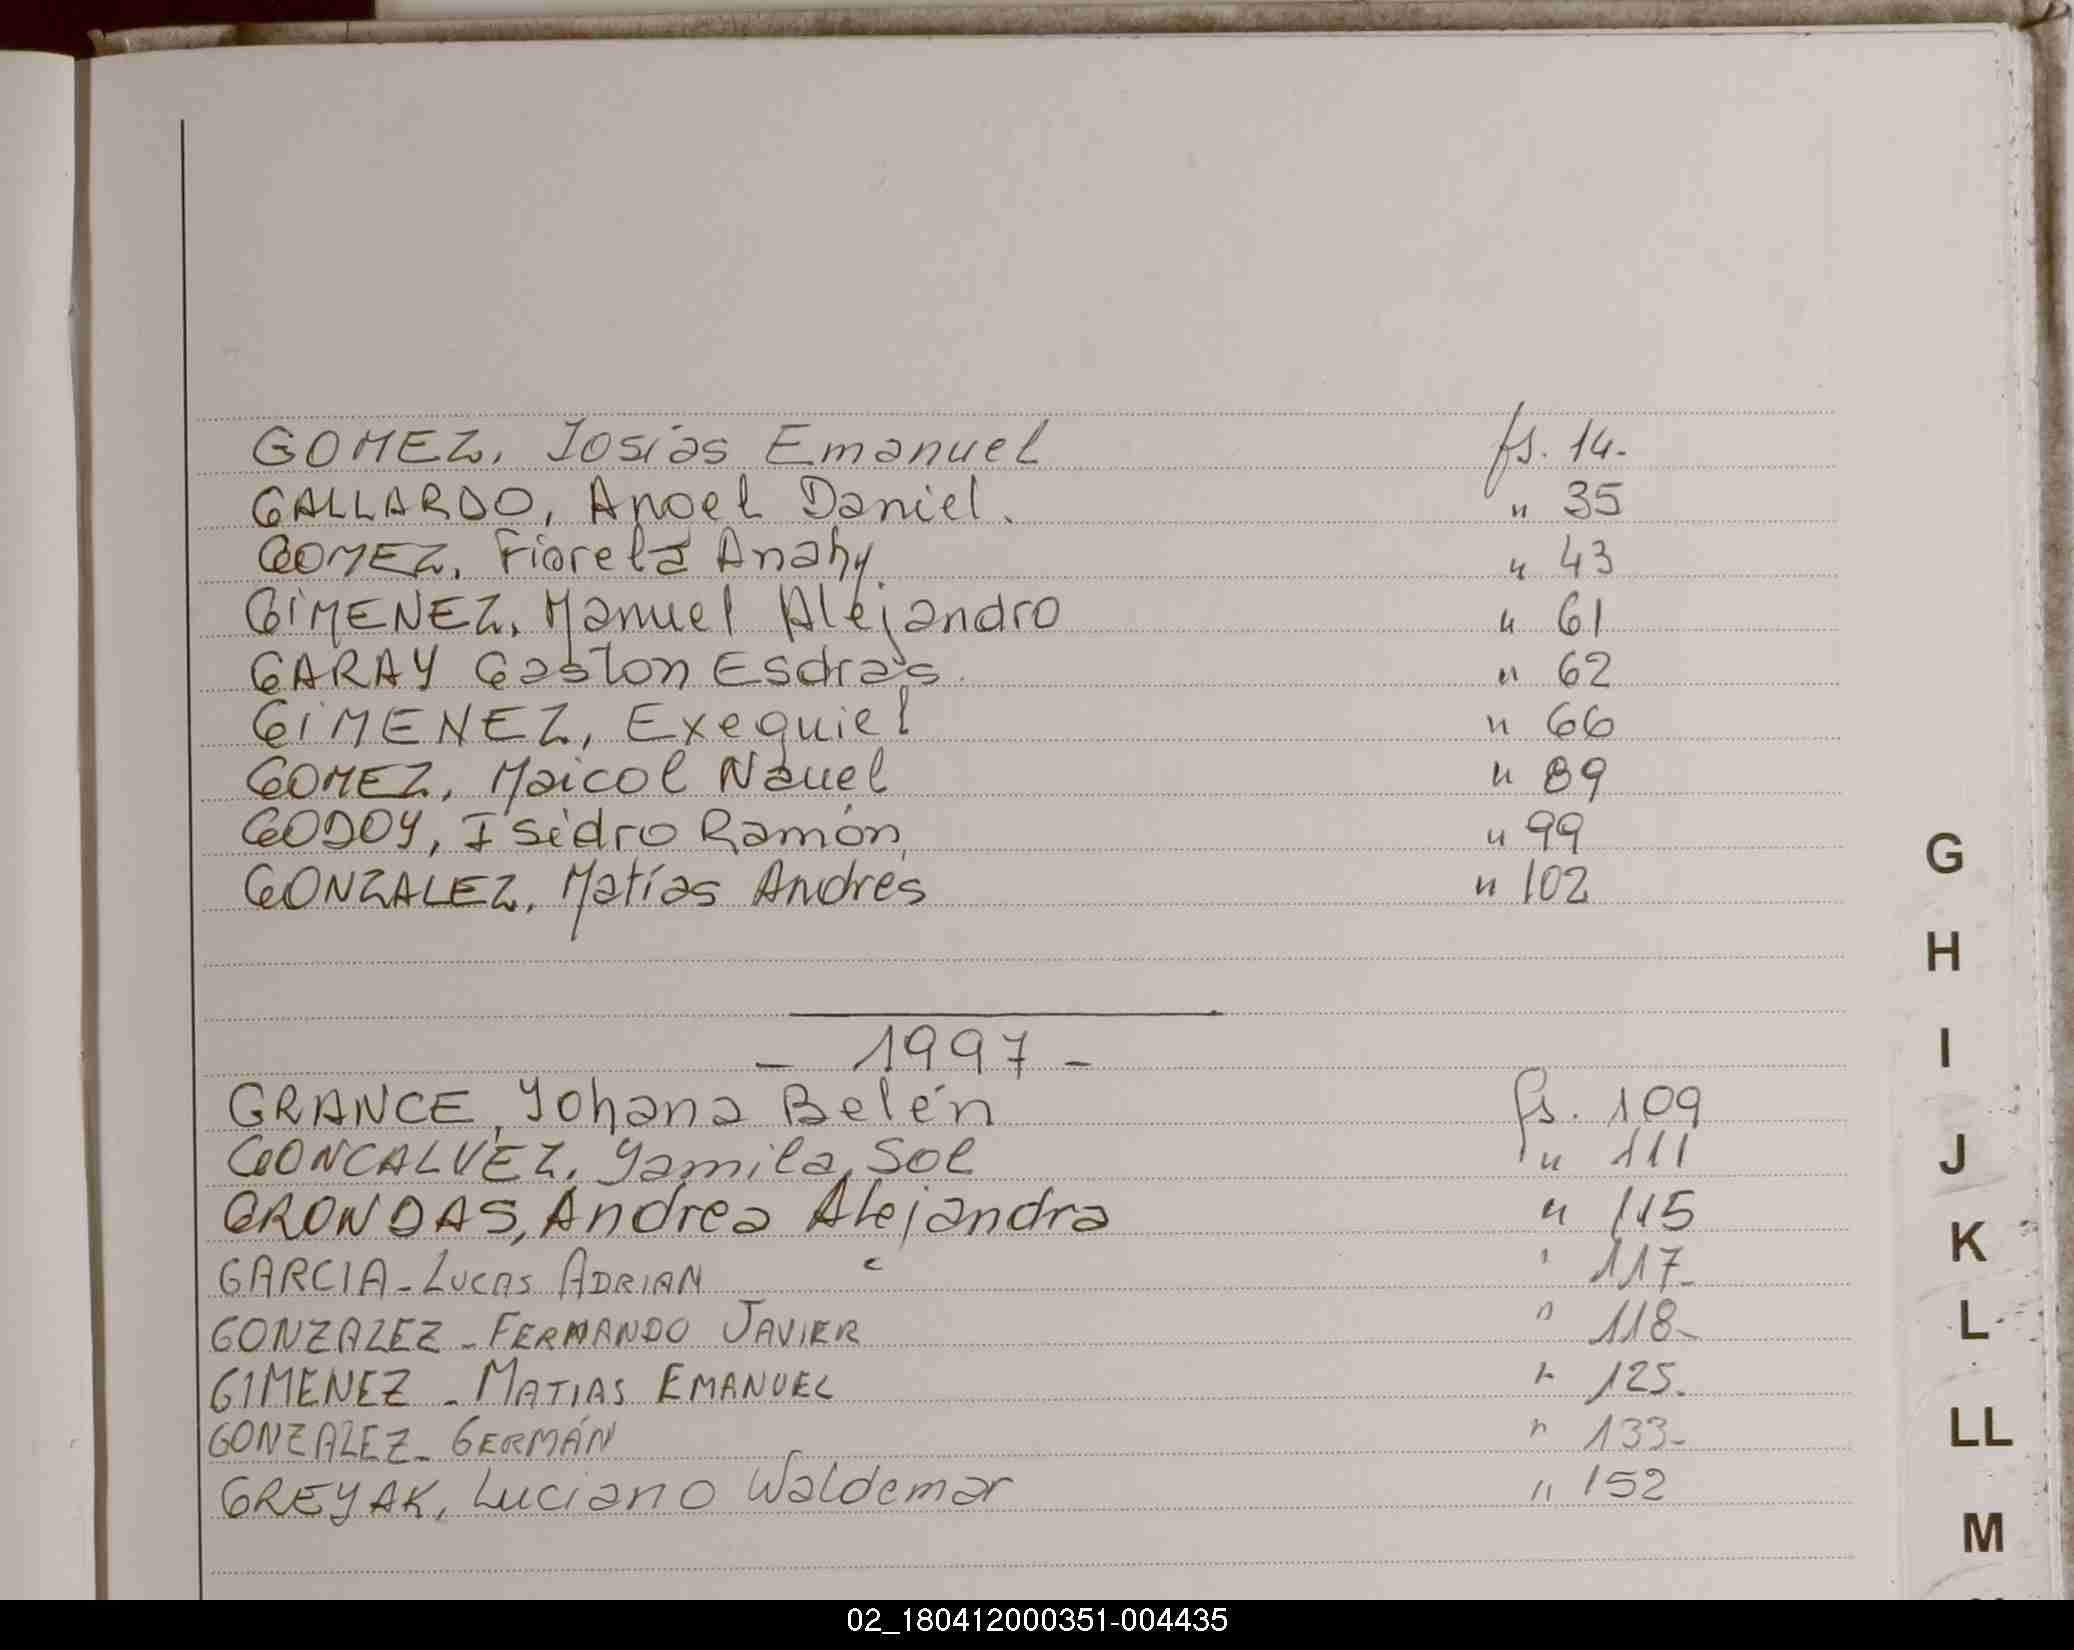 GOMEZ, Josías Emanuel fs. 14.
GALLARDO, Angel Daniel. " 35
GOMEZ, Fiorela Anahy. " 43
GIMENEZ, Manuel Alejandro " 61
GARAY Gaston Esdras. " 62
GIMENEZ, Exequiel " 66
GOMEZ, Maicol Nauel " 89
GODOY, Isidro Ramón, " 99
GONZALEZ, Matías Andrés " 102
- 1997 -
GRANCE, Yohana Belén fs. 109
GONCALVEZ, Yamila Sol " 111
GRONDAS, Andrea Alejandra " 115
GARCIA - LUCAS ADRIAN " 117-
GONZALEZ - FERNANDO JAVIER " 118-
GIMENEZ - MATIAS EMANUEL " 125.
GONZALEZ - GERMÁN " 133-
GREYAK, Luciano Waldemar " 152
G
H
I
J
K
L
LL
M
02_180412000351-004435